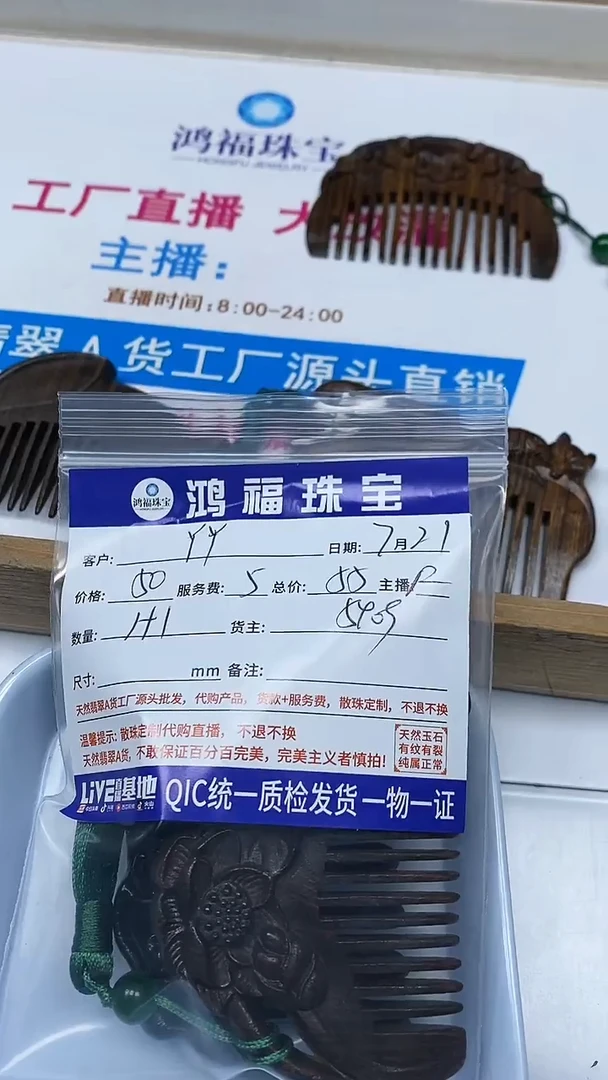 鸿福珠宝
HONGFU JEWELRY
工厂直播 大
主播：
直播时间：8:00-24:00
翡翠A货工厂源头直销
鸿福珠宝 鸿福珠宝
客户: YY 日期: 7月21
价格: 50 服务费: 5 总价: 55 主播: P
数量: 1+1 货主:
尺寸: mm 备注:
天然翡翠A货工厂源头批发，代购产品，货款+服务费，散珠定制，不退不换
温馨提示: 散珠定制代购直播，不退不换
天然翡翠A货，不敢保证百分百完美，完美主义者慎拍!
天然玉石
有纹有裂
纯属正常
LIVE直播基地 QIC统一质检发货 一物一证